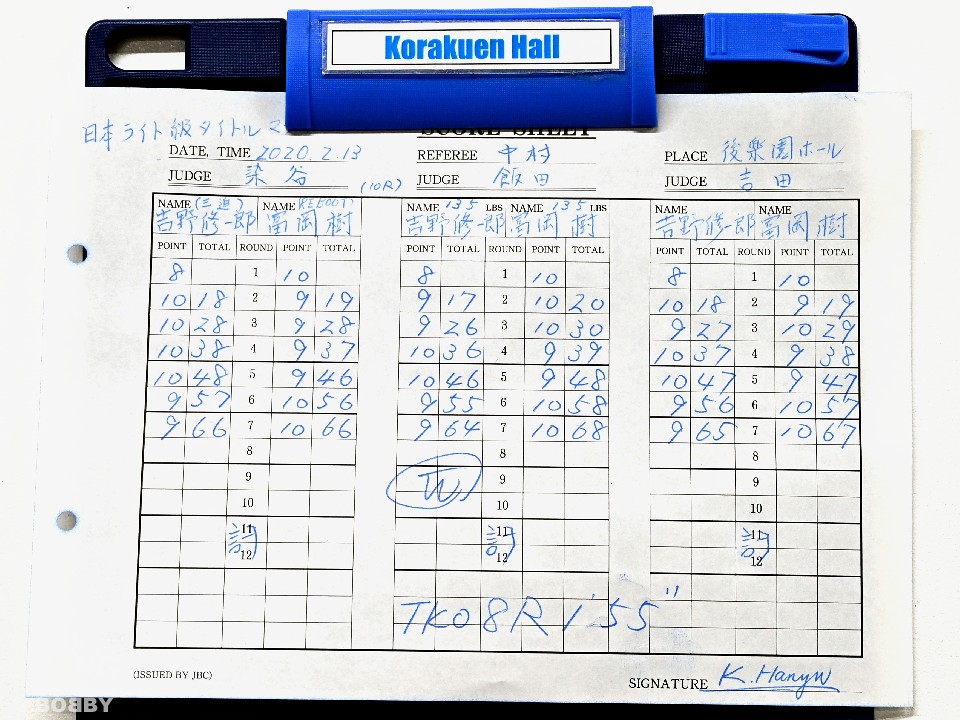 Korakuen Hall
日本ライト級タイトルマ
SCORE SHEET
DATE, TIME 2020.2.13 REFEREE 中村 PLACE 後樂園ホール
JUDGE 染谷 (10R) JUDGE 飯田 JUDGE 吉田
NAME (三迫) NAME NAME 135 LBS NAME 135 LBS NAME NAME
吉野修一郎 富岡樹 吉野修一郎 富岡樹 吉野修一郎 富岡樹
POINT TOTAL ROUND POINT TOTAL POINT TOTAL ROUND POINT TOTAL POINT TOTAL ROUND POINT TOTAL
8 1 10 8 1 10 8 1 10
10 18 2 9 19 9 17 2 10 20 10 18 2 9 19
10 28 3 9 28 9 26 3 10 30 9 27 3 10 29
10 38 4 9 37 10 36 4 9 39 10 37 4 9 38
10 48 5 9 46 10 46 5 9 48 10 47 5 9 47
9 57 6 10 56 9 55 6 10 58 9 56 6 10 57
9 66 7 10 66 9 64 7 10 68 9 65 7 10 67
8 8 8
9 W 9 9
10 10 10
11 11 11
12 12 12
TKO 8R 1'55"
(ISSUED BY JBC)
SIGNATURE
BOBBY